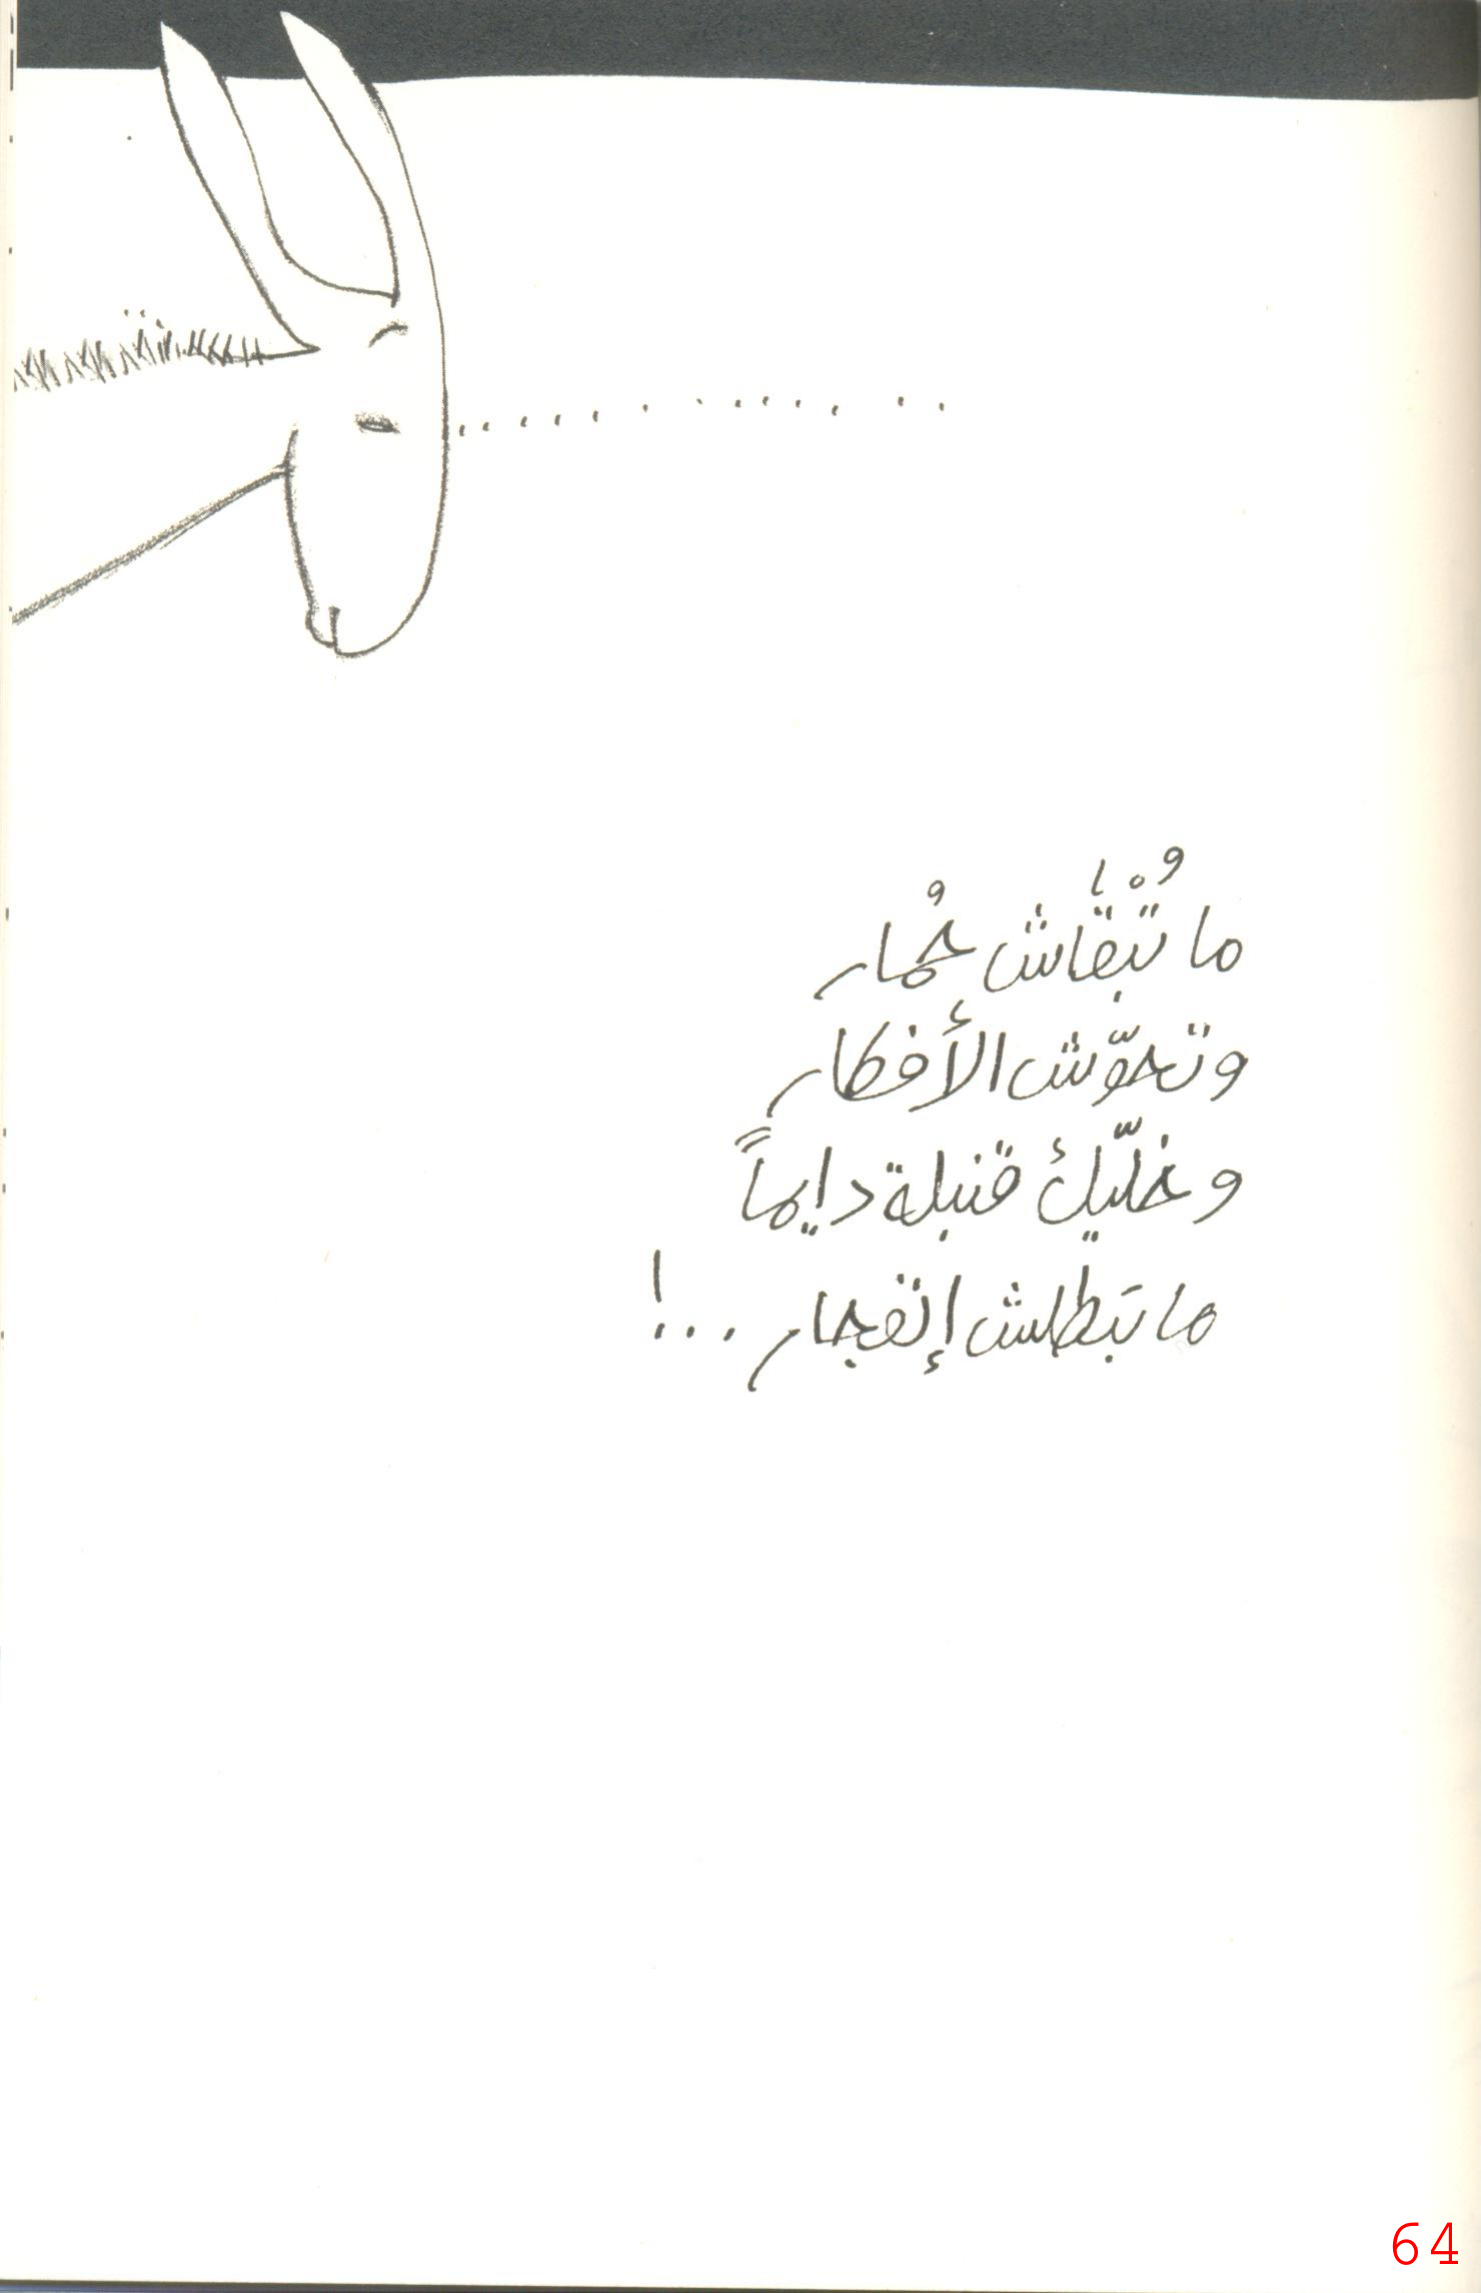 ما تُبْقاش حُمار
وتحوّش الأفكار
وخليّك قنبلة دايماً
ما تبَطلش إنفجار ...!
64